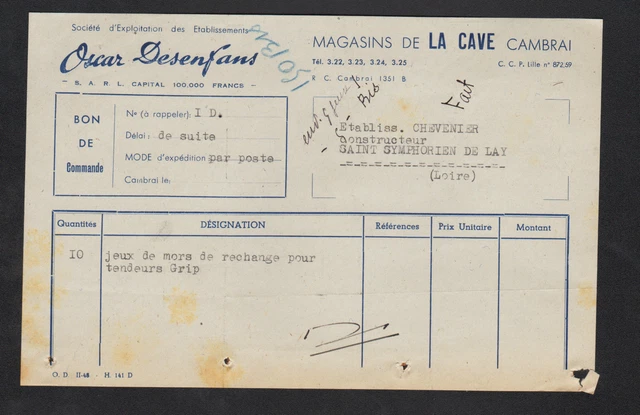 Société d'Exploitation des Etablissements
Oscar Desenfans
- S. A. R. L. CAPITAL 100.000 FRANCS -
MAGASINS DE LA CAVE CAMBRAI
Tél. 3.22, 3.23, 3.24, 3.25
C. C. P. Lille n° 872.59
R. C. Cambrai 1351 B
Fait
BON
DE
Commande
No (à rappeler): I D.
Délai: de suite
MODE d'expédition par poste
Cambrai le:
Etabliss. CHEVENIER
Constructeur
SAINT SYMPHORIEN DE LAY
-=-=-=-=-=-=-=-=-=-=-
(Loire)
Quantités DÉSIGNATION Références Prix Unitaire Montant
IO jeux de mors de rechange pour
tendeurs Grip
O. D. II-48 - H. 141 D